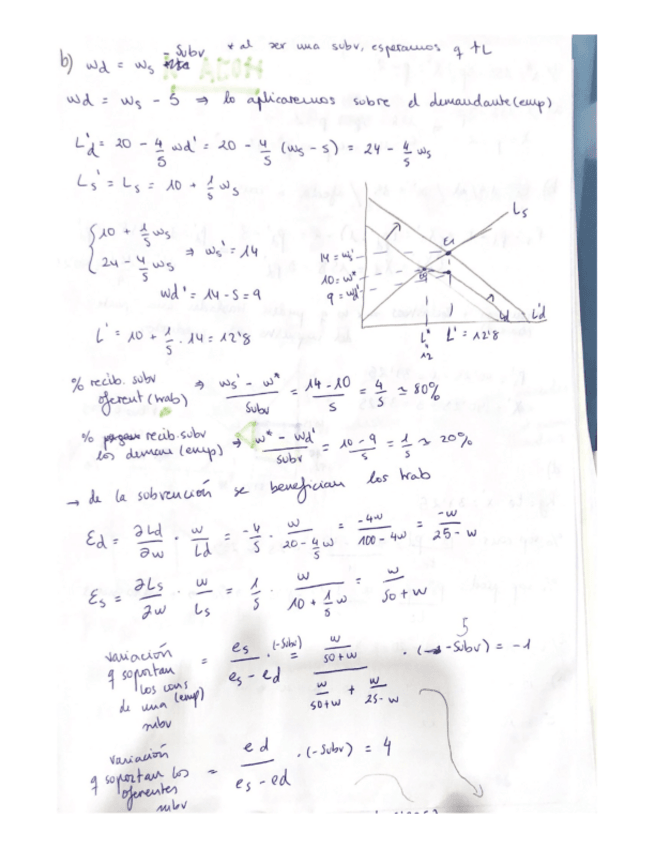 b) wd = ws - Subv * al ser una subv, esperamos q ↑L
wd = ws - 5 ⇒ lo aplicaremos sobre el demandante (emp)
L'd = 20 - 4/5 wd' = 20 - 4/5 (ws - 5) = 24 - 4/5 ws
Ls' = Ls = 10 + 1/5 ws
{ 10 + 1/5 ws
24 - 4/5 ws ⇒ ws' = 14
wd' = 14 - 5 = 9
L' = 10 + 1/5 . 14 = 12'8
Ls
e1
14 = ws'
10 = w*
9 = wd'
Ld L'd
L* L' = 12'8
12
% recib. subv
oferent (trab) ⇒ ws' - w* / subv = 14 - 10 / 5 = 4/5 ≈ 80%
% recib. subv
los deman (emp) ⇒ w* - wd' / subv = 10 - 9 / 5 = 1/5 ≈ 20%
→ de la subvención se benefician los trab
Ed = ∂Ld/∂w · w/Ld = -4/5 · w / 20 - 4/5 w = -4w / 100 - 4w = -w / 25 - w
Es = ∂Ls/∂w · w/Ls = 1/5 · w / 10 + 1/5 w = w / 50 + w
variación
q soportan
los cons
de una (emp)
subv
= es / es - ed · (-subv) = w/50+w / w/50+w + w/25-w · (-subv) = -1
5
variación
q soportan los
oferentes
subv
= ed / es - ed · (-subv) = 4